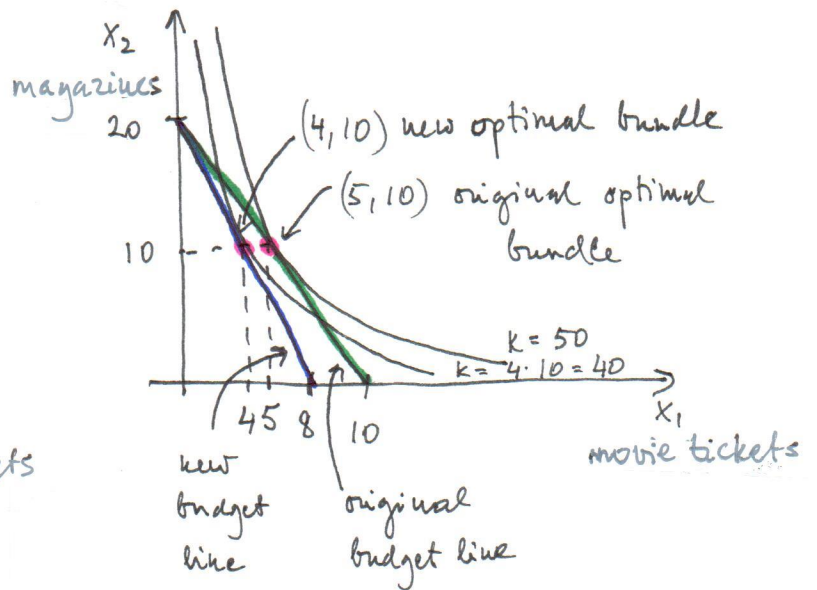 X₂
magazines
20
(4,10) new optimal bundle
(5,10) original optimal
bundle
10
k = 50
k = 4·10 = 40
4 5 8 10
X₁
movie tickets
ets
new
budget
line
original
budget line